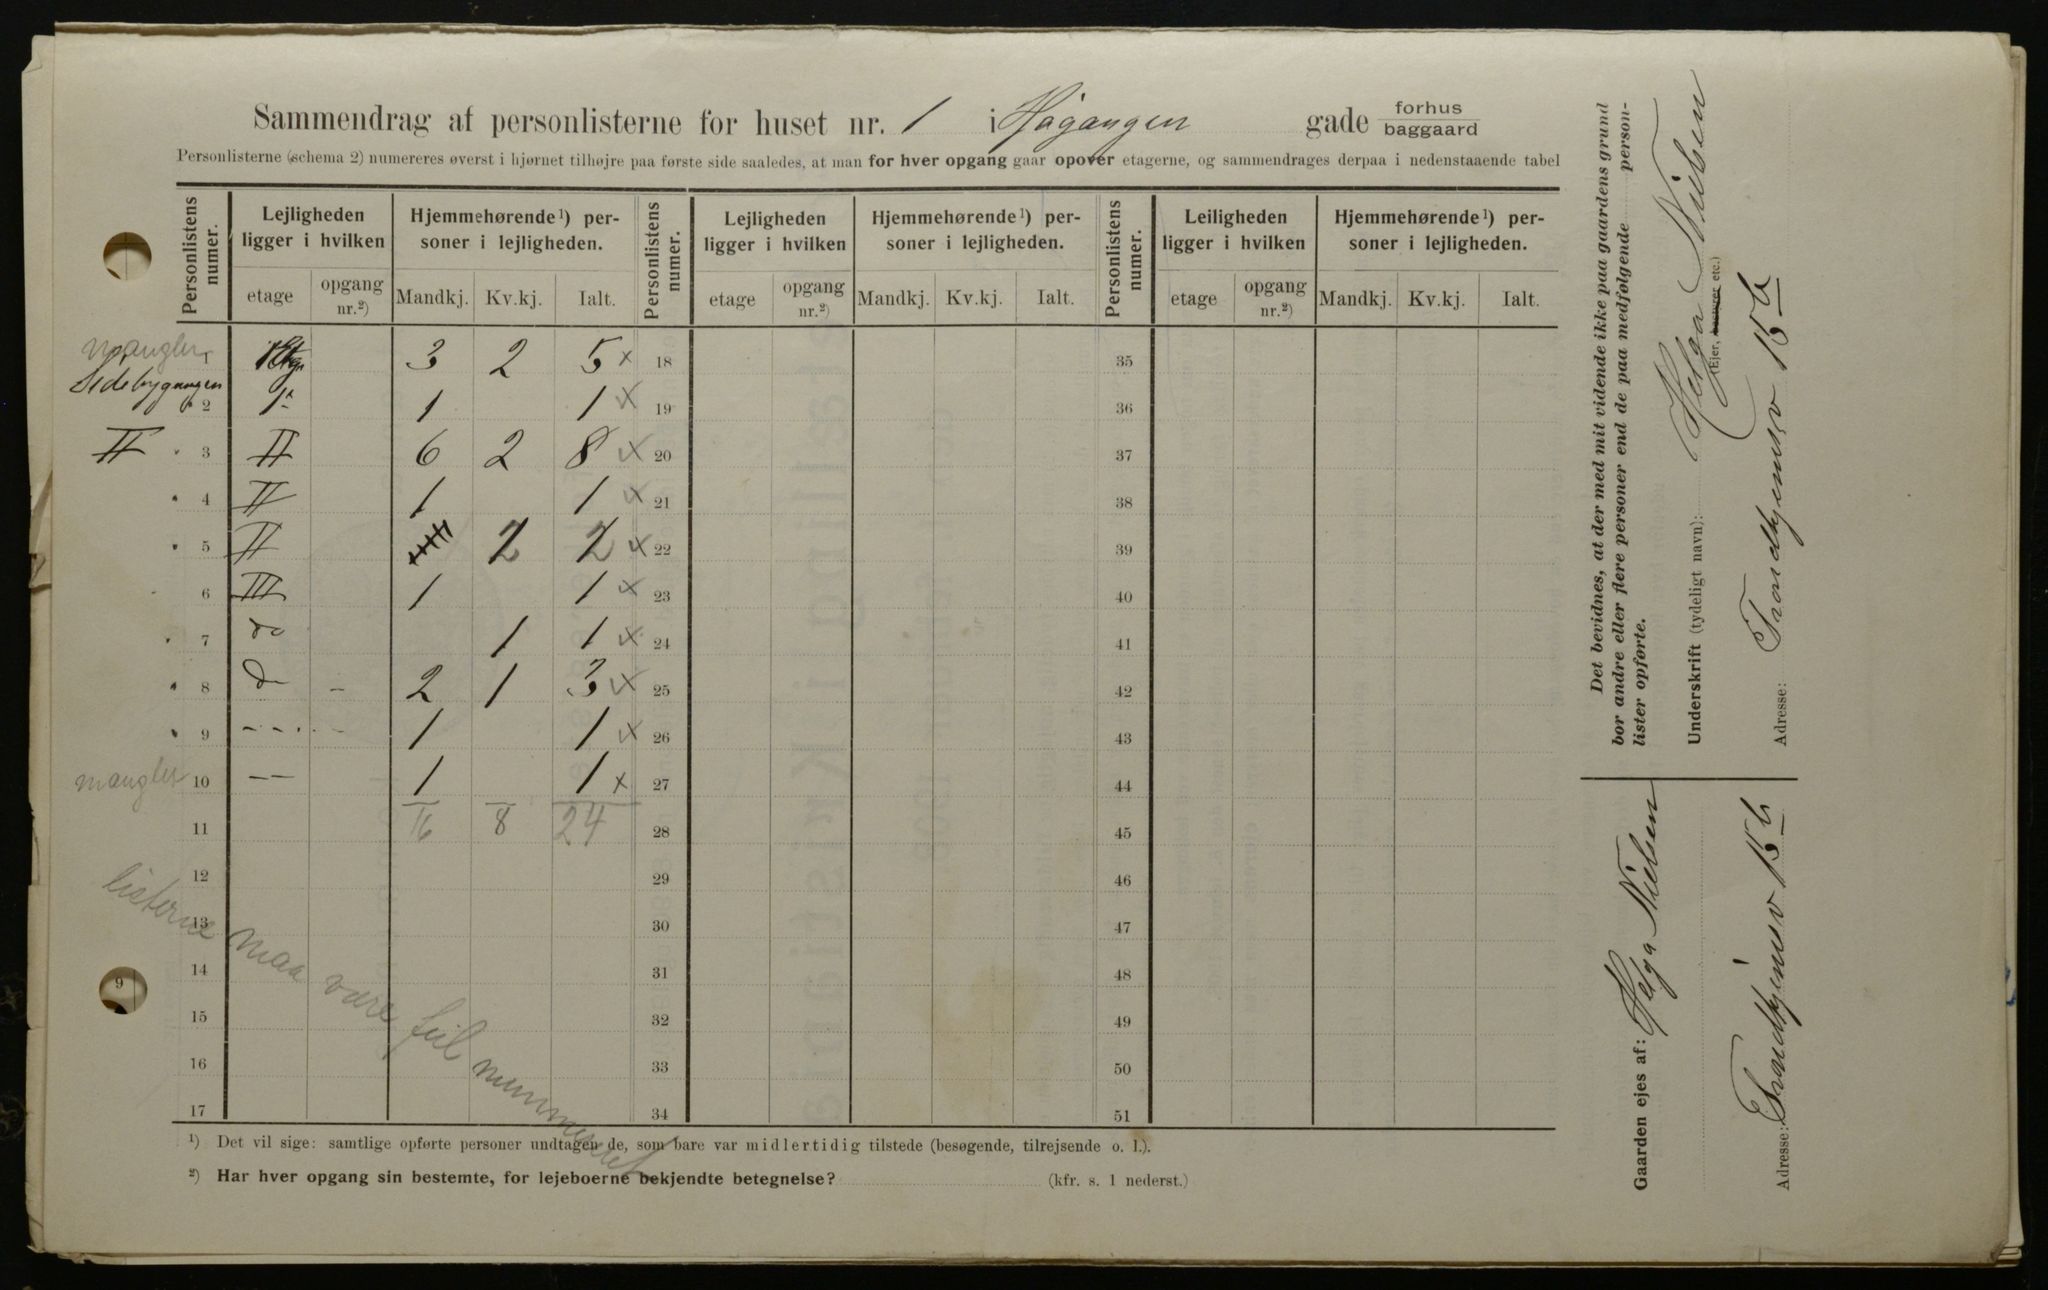 Sammendrag af personlisterne for huset nr. 1 i Høgangen gade forhus baggaard
Personlisterne (schema 2) numereres øverst i hjørnet tilhøjre paa første side saaledes, at man for hver opgang gaar opover etagerne, og sammendrages derpaa i nedenstaaende tabel
Personlistens numer. Lejligheden ligger i hvilken Hjemmehørende¹) personer i lejligheden. Personlistens numer. Lejligheden ligger i hvilken Hjemmehørende¹) personer i lejligheden. Personlistens numer. Leiligheden ligger i hvilken Hjemmehørende¹) personer i lejligheden.
etage opgang nr.²) Mandkj. Kv.kj. Ialt. etage opgang nr.²) Mandkj. Kv.kj. Ialt. etage opgang nr.²) Mandkj. Kv.kj. Ialt.
mangler 1 1 Etg 3 2 5 x 18 35
Sidebygangen 2 1ᵗ 1 1 x 19 36
II 3 II 6 2 8 x 20 37
4 II 1 1 x 21 38
5 II 2 2 x 22 39
6 III 1 1 x 23 40
7 do 1 1 x 24 41
8 do – 2 1 3 x 25 42
9 – – – – 1 1 x 26 43
mangler 10 – – 1 1 x 27 44
11 16 8 24 28 45
12 29 46
13 30 47
14 31 48
15 32 49
16 33 50
17 34 51
listerne maa være feil nummereret
¹) Det vil sige: samtlige opførte personer undtagen de, som bare var midlertidig tilstede (besøgende, tilrejsende o. l.).
²) Har hver opgang sin bestemte, for lejeboerne bekjendte betegnelse? (kfr. s. 1 nederst.)
Det bevidnes, at der med mit vidende ikke paa gaardens grund
bor andre eller flere personer end de paa medfølgende person-
lister opførte.
Underskrift (tydeligt navn): Helga Nielsen
(Ejer, bestyrer etc.)
Adresse: Trondhjemsv 15 b
Gaarden ejes af: Helga Nielsen
Adresse: Trondhjemsv 15 b
9